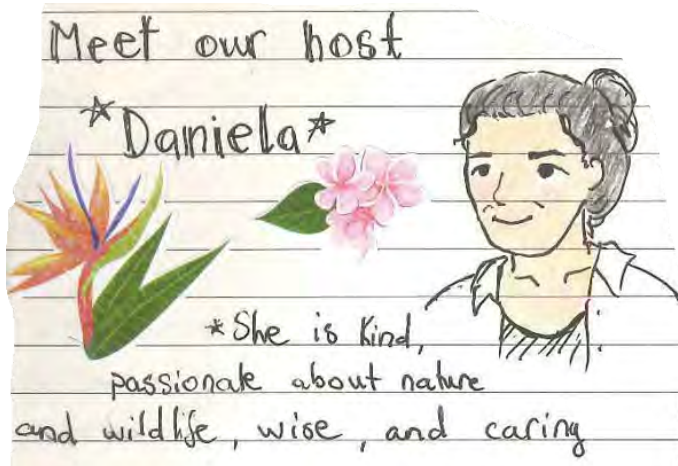 Meet our host
*Daniela*
*She is kind,
passionate about nature
and wildlife, wise, and caring